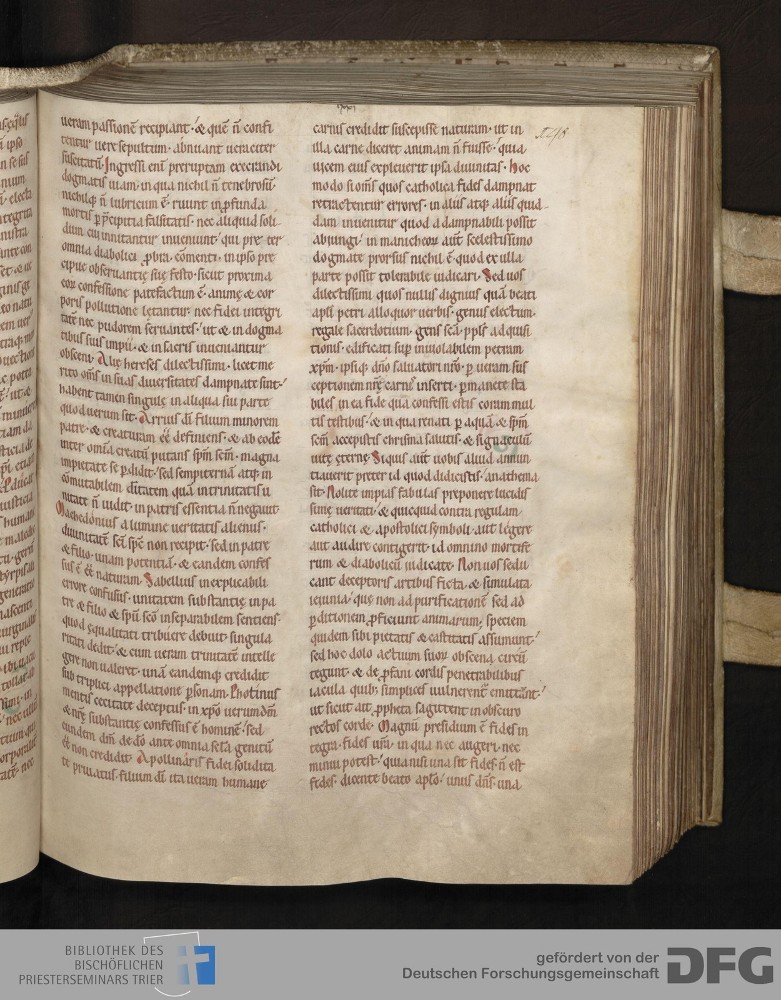 ueram passionē recipiant· & quē n̄ confi
tentur uere sepultum· abnuant ueraciter
suscitatū· Ingressi eni preruptam execrandi
dogmatis uiam· in qua nichil n̄ tenebrosū·
nichilq; n̄ lubricum ē· ruunt in ꝓfunda
mortis p̄cipitia falsitatis· nec aliquid soli
dum cui innitantur inueniunt· qui pre ter
omnia diabolici ꝓbra cōmenti· in ipso pre
cipue obseruantię suę festo· sicut proxima
eoꝝ confessione patefactum ē· animę & cor
poris pollutione lętantur· nec fidei integri
tatē nec pudorem seruantes· ut & in dogma
tibus suis impii· & in sacris inueniantur
obsceni· Alię hereses dilectissimi· licet me
rito om̄s in suas diuersitates dampnate sint·
habent tamen singulę in aliqua sui parte
quod uerum sit· Arrius dī filium minorem
patre· & creaturam ēē definiens· & ab eodē
inter omia creatū putans spm̄ scm̄· magna
impietate se ꝑdidit· sed sempiternā atq; in
cōmutabilem dīitatem quā in trinitatis u
nitate n̄ uidit· in patris essentia n̄ negauit
Machedonius a lumine ueritatis alienus·
diuinitatē scī sp̄c non recipit· sed in patre
& filio· unam potentiā· & eandem confes
sus ē ēē naturam· Sabellius inexplicabili
errore confusus· unitatem substantię in pa
tre & filio & spū scō inseparabilem sentiens·
quod ęqualitati tribuere debuit· singula
ritati dedit· & cum ueram trinitatē intelle
gere non ualeret· unā eandemq; credidit
sub triplici appellatione ꝑsonam· Photinus
mentis cecitate deceptus· in xp̄o uerum dm̄
& nr̄ę substantię confessus ē hominē· sed
eundem dm̄ de dō ante omnia scl̄a genitū
ēē non credidit· Apollinaris fidei solidita
te priuatus· filium dī ita ueram humane
carnis credidit suscepisse naturam· ut in
illa carne diceret animam n̄ fuisse· quia
uicem eius expleuerit ipsa diuinitas· hoc
modo si om̄s quos catholica fides dampnat
retractentur errores· in aliis atq; aliis quid
dam inuenitur quod a dampnabili possit
abiungi· in manicheoꝝ aut̄ scelestissimo
dogmate prorsus nichil ē· quod ex ulla
parte possit tolerabile iudicari· Sed uos
dilectissimi quos nullis dignius quā beati
apl̄i petri alloquor uerbis· genus electum·
regale sacerdotium· gens scā· ppl̄s adquisi
tionis· edificati sup̄ inuiolabilem petram
xp̄m· ipsiq; dn̄o saluatori nr̄o· ꝑ ueram sus
ceptionem nr̄ę carnis inserti· ꝑmanete sta
biles in ea fide quā confessi estis coram mul
tis testibus· & in qua renati ꝑ aquā & spm̄
scm̄ accepistis chrisma salutis· & signaculū
uitę ęternę· Siquis aut̄ uobis aliud annun
tiauerit preter id quod didicistis· anathema
sit· Nolite impias fabulas preponere lucidis
simę ueritati· & quicquid contra regulam
catholici & apostolici symboli· aut legere
aut audire contigerit· id omnino mortife
rum & diabolicū iudicate· Non uos sedu
cant deceptoris artibus ficta· & simulata
ieiunia· quę non ad purificationē sed ad
ꝑditionem ꝓficiunt animarum· speciem
quidem sibi pietatis & castitatis assumunt·
sed hoc dolo actuum suoꝝ obscena circū
tegunt· & de ꝓfani cordis penetrabilibus
iacula quib; simplices uulnerent̄ emittunt·
ut sicut ait ꝓpheta sagittent in obscuro
rectos corde· Magnū presidium ē fides in
tegra· fides uera· in qua nec augeri· nec
minui potest· quia nisi una sit fides· n̄ est
fides· dicente beato apl̄o· unus dn̄s· una
BIBLIOTHEK DES
BISCHÖFLICHEN
PRIESTERSEMINARS TRIER
gefördert von der
Deutschen Forschungsgemeinschaft
DFG